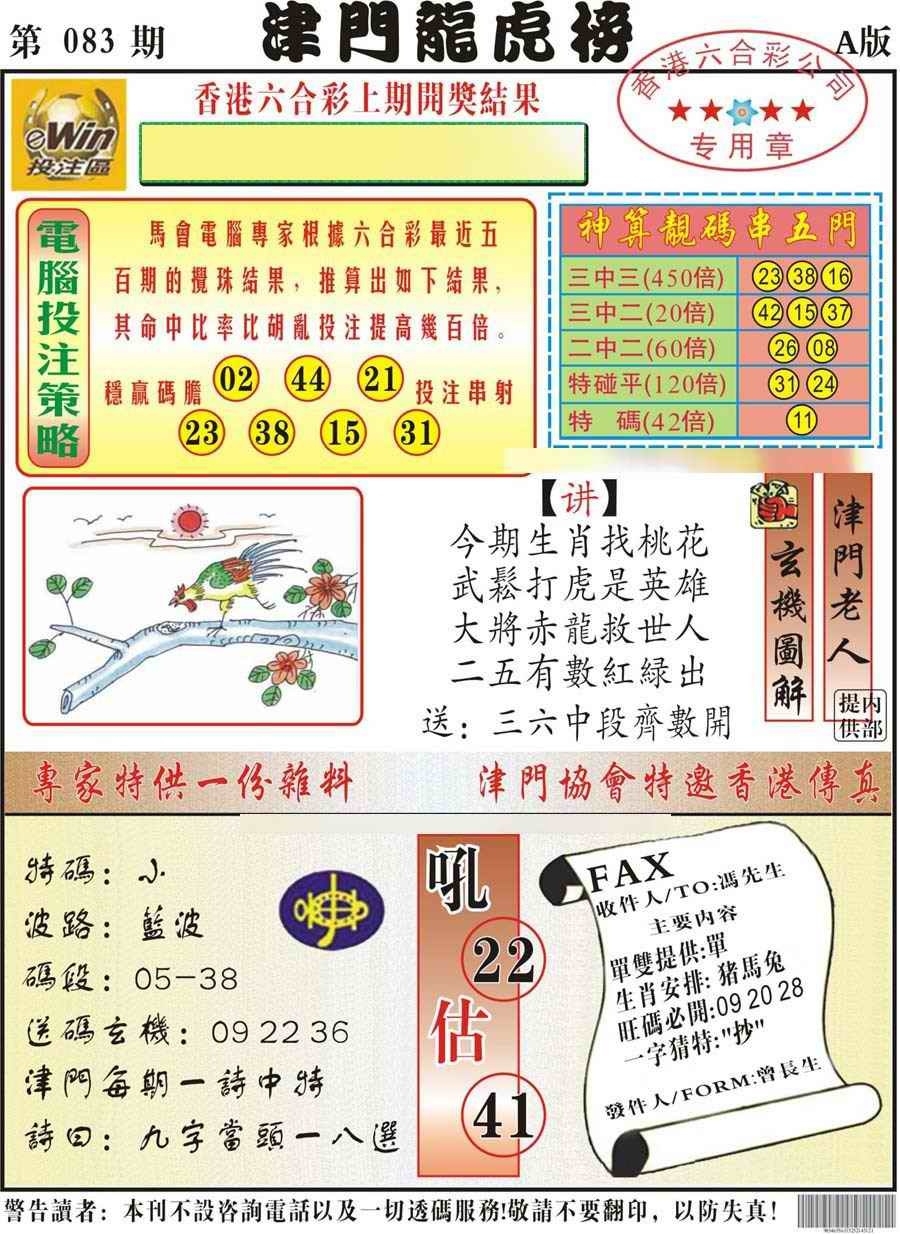 第 083 期
津門龍虎榜
A版
香港六合彩公司
专用章
eWin
投注區
香港六合彩上期開獎結果
電腦投注策略
馬會電腦專家根據六合彩最近五
百期的攪珠結果，推算出如下結果，
其命中比率比胡亂投注提高幾百倍。
穩贏碼膽 02 44 21 投注串射
23 38 15 31
神算靚碼串五門
三中三(450倍) 23 38 16
三中二(20倍) 42 15 37
二中二(60倍) 26 08
特碰平(120倍) 31 24
特 碼(42倍) 11
【讲】
今期生肖找桃花
武鬆打虎是英雄
大將赤龍救世人
二五有數紅緑出
送：三六中段齊數開
玄機圖解
津門老人
内部提供
專家特供一份雜料
津門協會特邀香港傳真
特碼：小
波路：藍波
碼段：05-38
送碼玄機：09 22 36
津門每期一詩中特
詩曰：九字當頭一八選
吼
22
估
41
FAX
收件人/TO:馮先生
主要内容
單雙提供:單
生肖安排:猪馬兔
旺碼必開:09 20 28
一字猜特:"抄"
發件人/FORM:曾長生
警告讀者：本刊不設咨詢電話以及一切透碼服務!敬請不要翻印，以防失真!